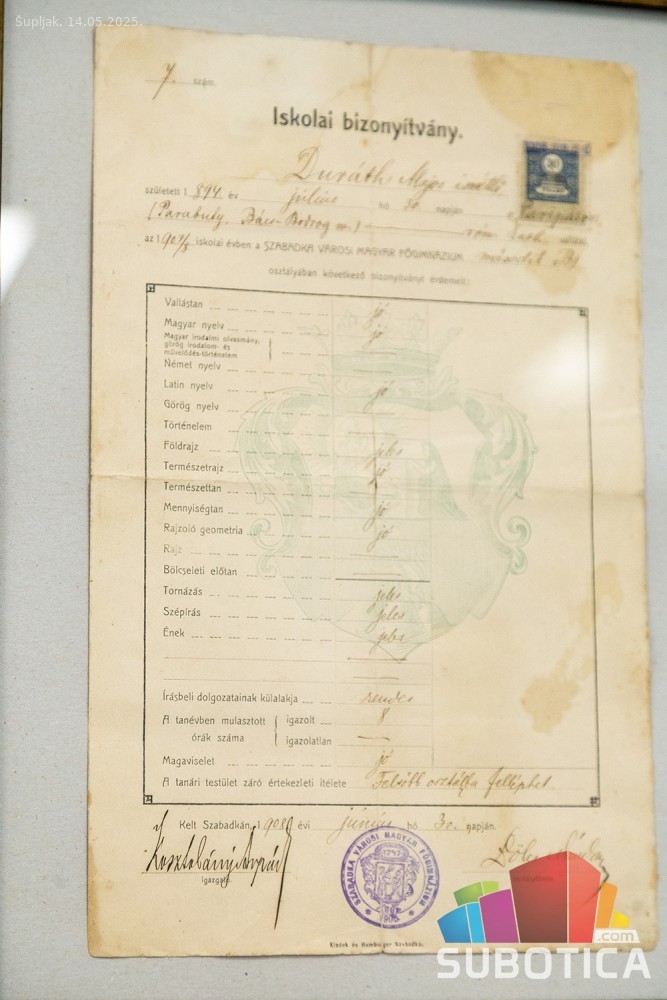 Šupljak, 14.05.2025.
7. szám.
Iskolai bizonyítvány.
született 1894 év július hó 30. napján
(Parabuty, Bács-Bodrog m.) róm. kath.
az 1907/8 iskolai évben a SZABADKA VÁROSI MAGYAR FŐGIMNÁZIUM második B)
osztályában következő bizonyítványt érdemelt:
Vallástan jó
Magyar nyelv jó
Magyar irodalmi olvasmány,
görög irodalom- és
művelődés-történelem
Német nyelv
Latin nyelv jó
Görög nyelv
Történelem
Földrajz jeles
Természetrajz jó
Természettan
Mennyiségtan jó
Rajzoló geometria jó
Rajz
Bölcseleti előtan
Tornázás jeles
Szépírás jeles
Ének jeles
Írásbeli dolgozatainak külalakja rendes
A tanévben mulasztott órák száma
igazolt 8
igazolatlan —
Magaviselet jó
A tanári testület záró értekezleti ítélete Felsőbb osztályba felléphet.
Kelt Szabadkán, 1908 évi június hó 30. napján.
Kosztolányi Árpád
igazgató.
SZABADKA VÁROSI MAGYAR FŐGIMNÁZIUM
Kladek és Hamburger Szabadka.
.com
SUBOTICA